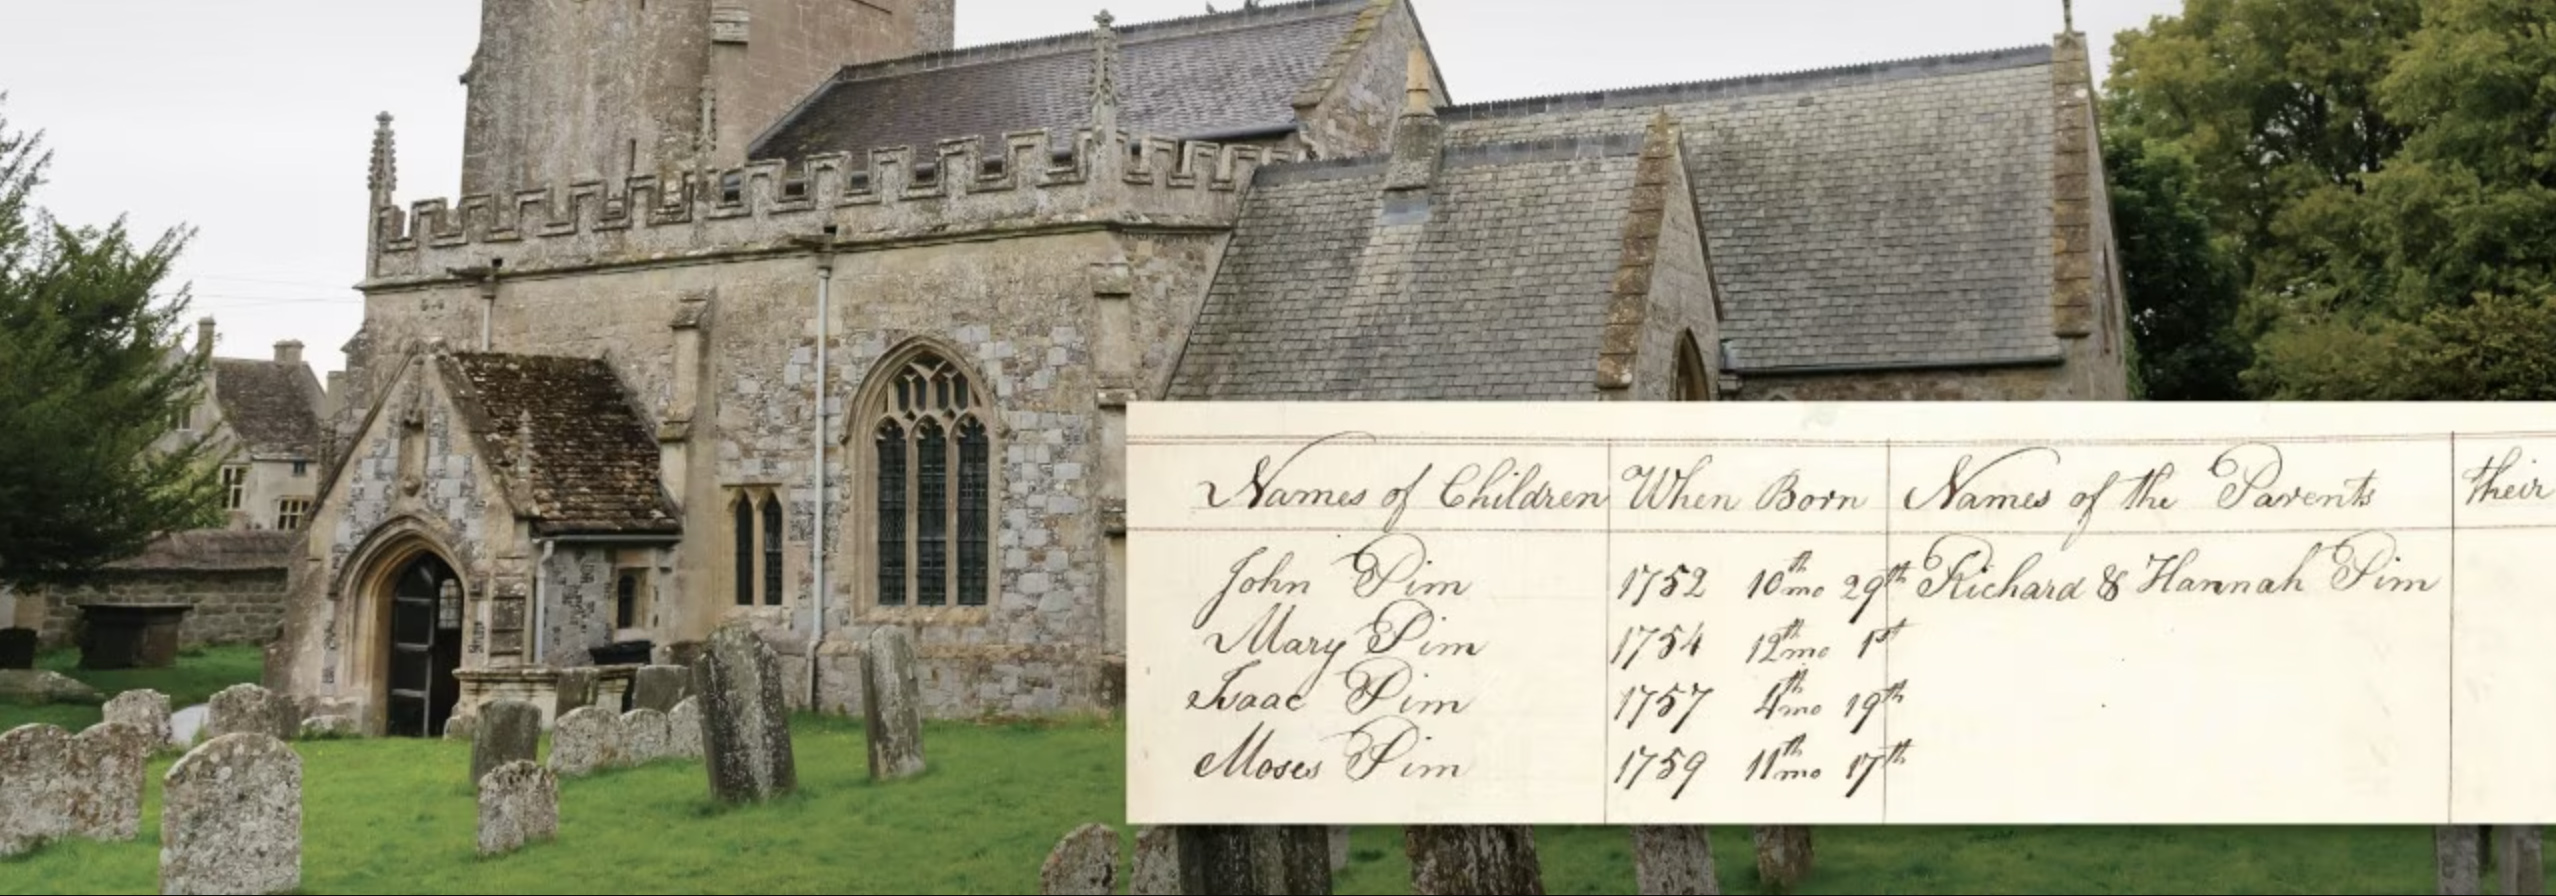 Names of Children When Born Names of the Parents their
John Pim 1752 10th mo 29th Richard & Hannah Pim
Mary Pim 1754 12th mo 1st
Isaac Pim 1757 4th mo 19th
Moses Pim 1759 11th mo 17th